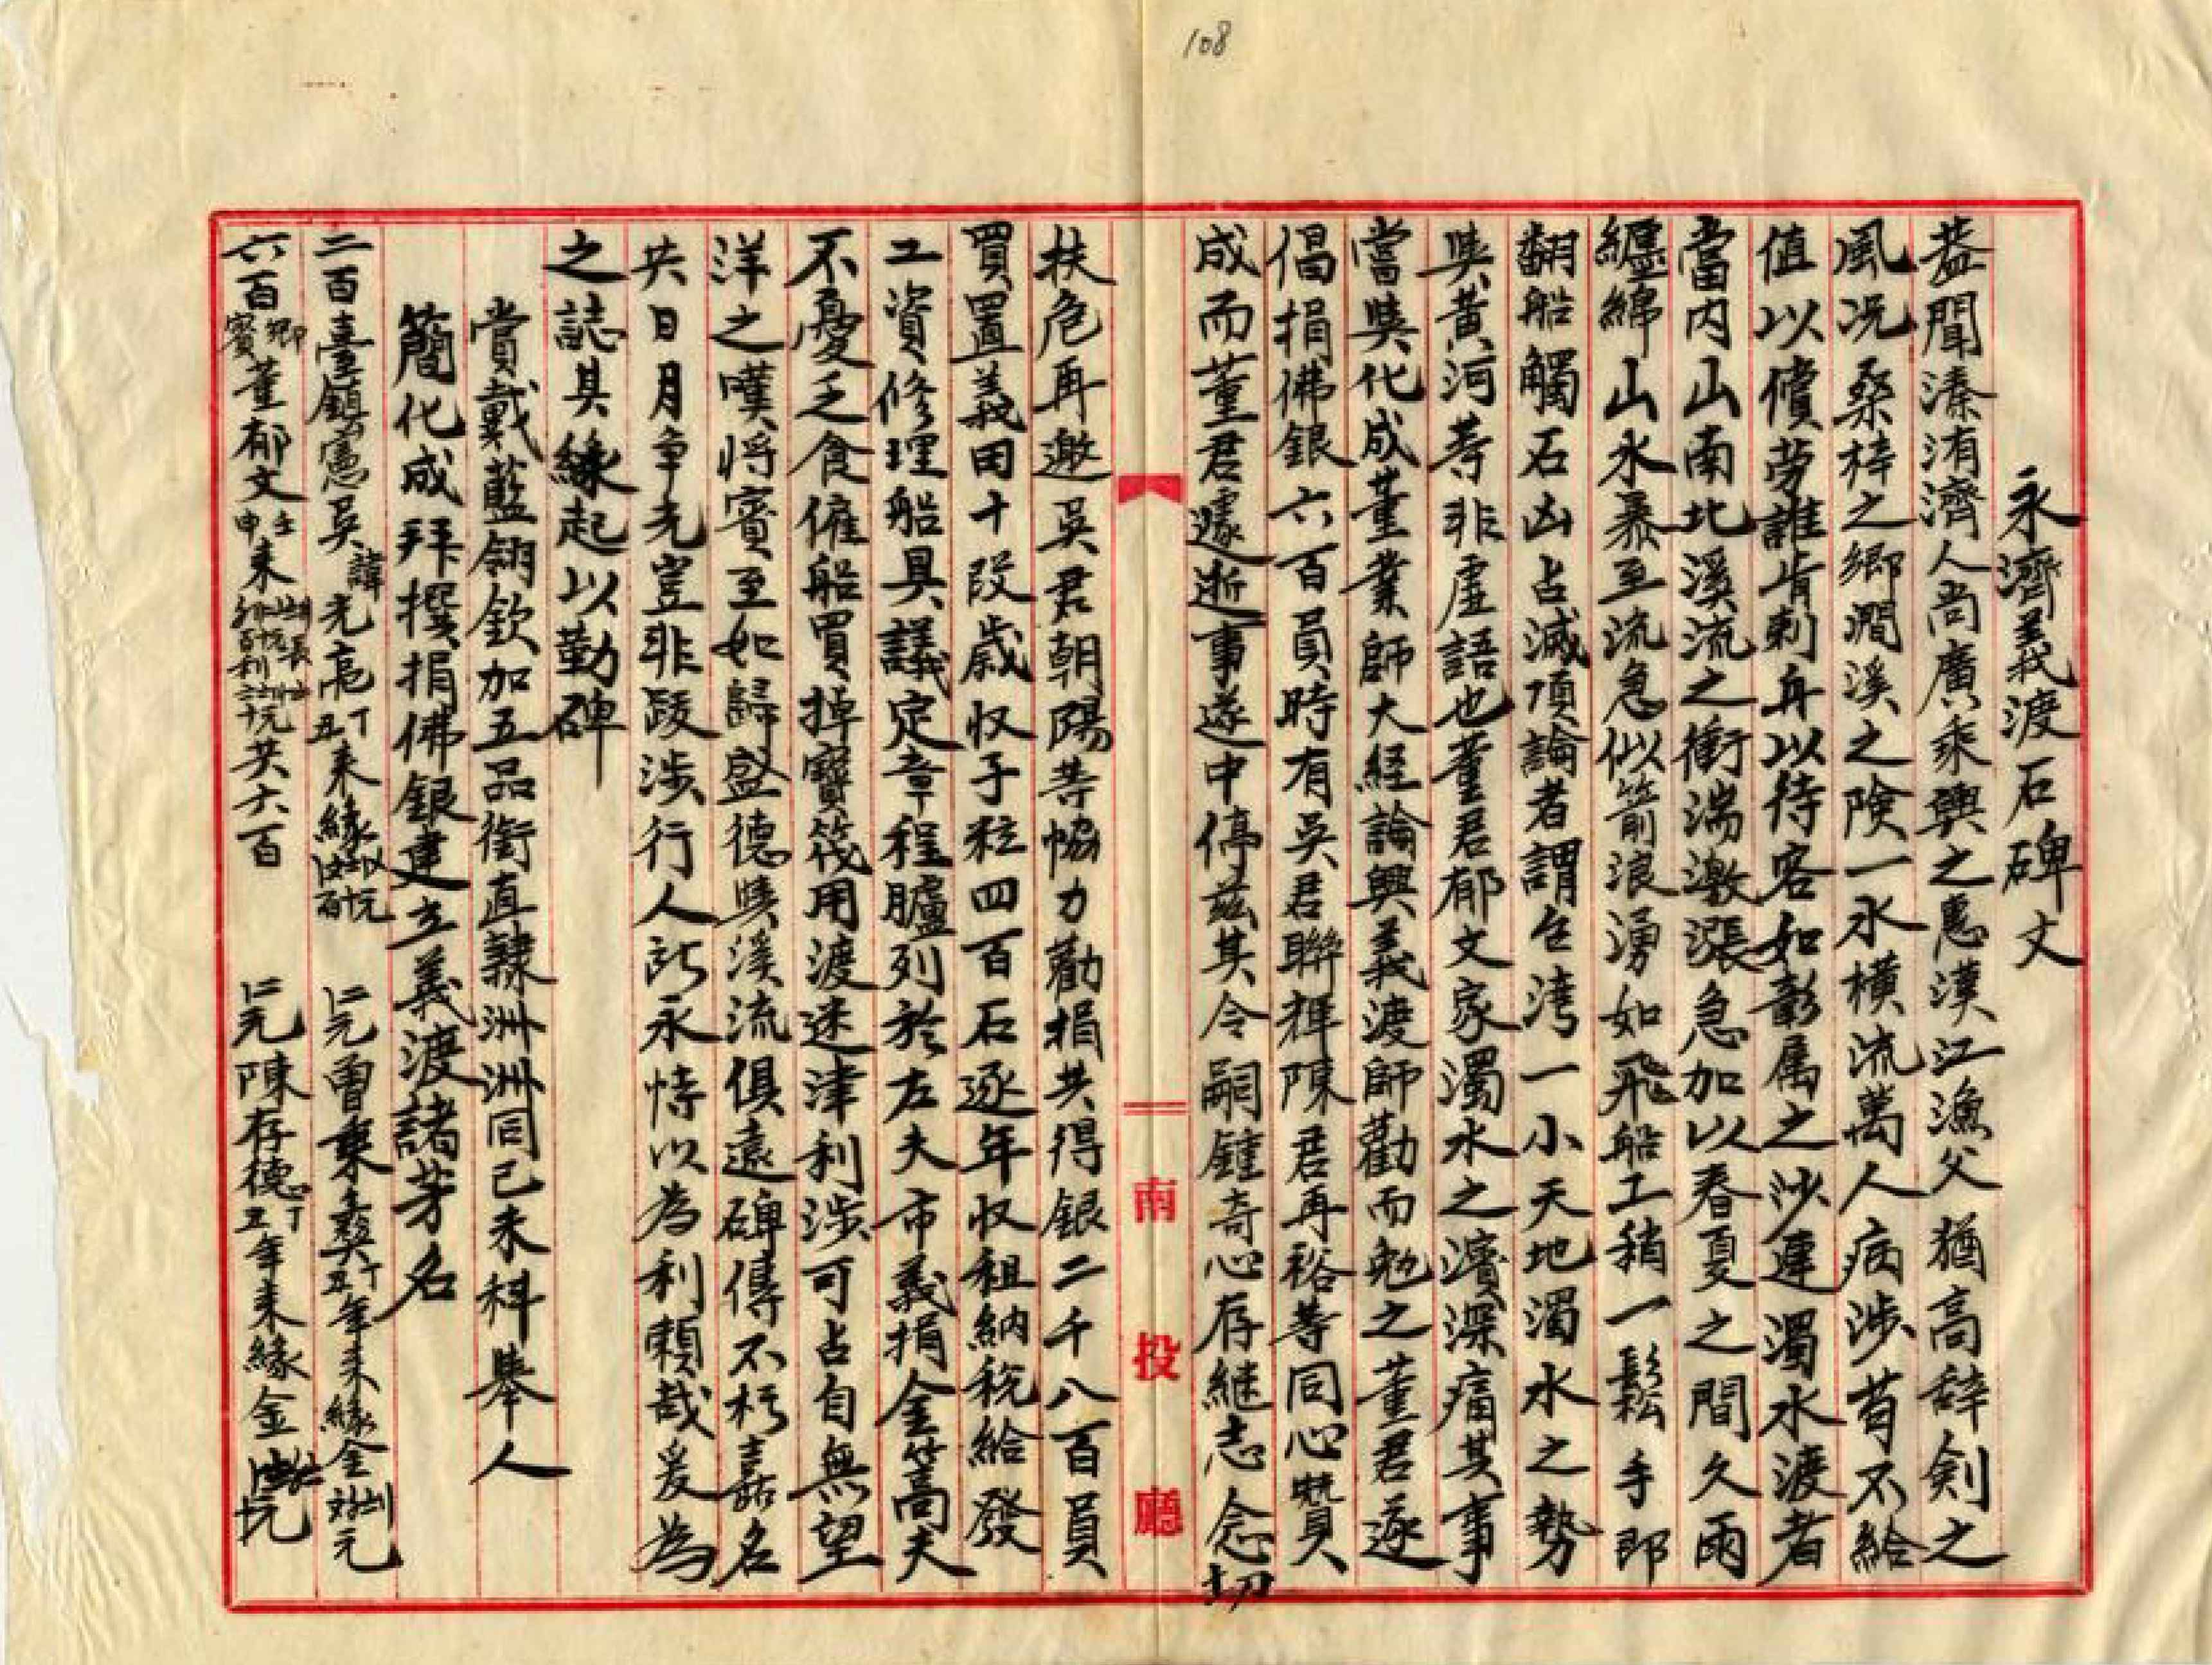 108
永濟義渡石碑文
蓋聞溱洧濟人尚廣乘輿之惠漢江漁父猶高辞劍之
風况桑梓之鄉澗溪之險一水橫流萬人病涉苟不給
值以償勞誰肯刺舟以待客如彰属之沙連濁水渡者
當内山南北溪流之衝湍激漲急加以春夏之間久雨
纏綿山水暴至流急似箭浪湧如飛船工稍一鬆手即
翻船觸石凶占滅頂論者謂台湾一小天地濁水之勢
與黃河等非虛語也董君郁文家濁水之濱深痛其事
當與化成董業師大経論興義渡師勸而勉之董君遂
倡捐佛銀六百員時有吳君聯輝陳君再裕等同心贊
成而董君遽逝事遂中停茲其令嗣鍾奇心存継志念切
南投廳
扶危再邀吳君朝陽等恊力勸捐共得銀二千八百員
買置義田十段歲収子粒四百石逐年収租納税給發
工資修理船具議定章程臚列於左夫市義捐金篙夫
不憂乏食傕船買掉寶筏用渡迷津利涉可占自無望
洋之嘆将賓至如歸盛德與溪流俱遠碑傳不朽嘉名
共日月争光豈非跋涉行人所永恃以為利賴哉爰為
之誌其緣起以勒碑
賞戴藍翎欽加五品銜直隸洲洲同己未科舉人
簡化成拜撰捐佛銀建立義渡諸芳名
二百臺鎮憲吳諱光亮丁丑来緣 元曾秉彝丁丑年来緣金 元
六百鄉賓董郁文壬申来 共六百 元陳存德丁丑年来緣金 元